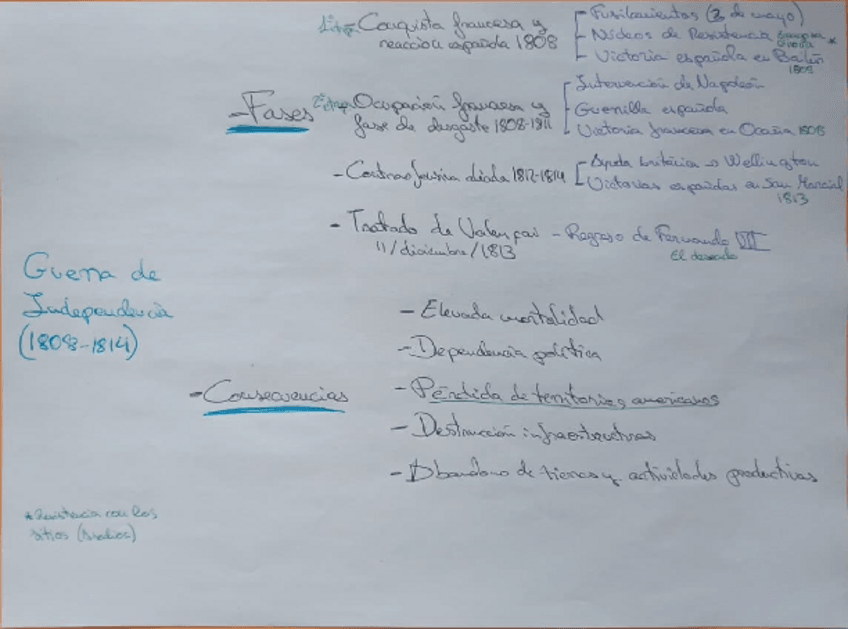 1ª etp Conquista francesa y
reacción española 1808
- Fusilamientos (3 de mayo)
- Núcleos de Resistencia Zaragoza Girona *
- Victoria española en Bailén
1808
- Fases
2ª etp Ocupación francesa y
fase de desgaste 1808-1811
- Intervención de Napoleón
- Guerrilla española
- Victoria francesa en Ocaña
- Contraofensiva aliada 1812-1814
- Ayuda británica → Wellington
- Victorias españolas en San Marcial
1813
- Tratado de Valençai - Regreso de Fernando VII
11/diciembre/1813
El deseado
Guerra de
Independencia
(1808-1814)
- Consecuencias
- Elevada mortalidad
- Dependencia política
- Pérdida de territorios americanos
- Destrucción infraestructuras
- Abandono de tierras y actividades productivas
* Resistencia con los
sitios (Asedios)